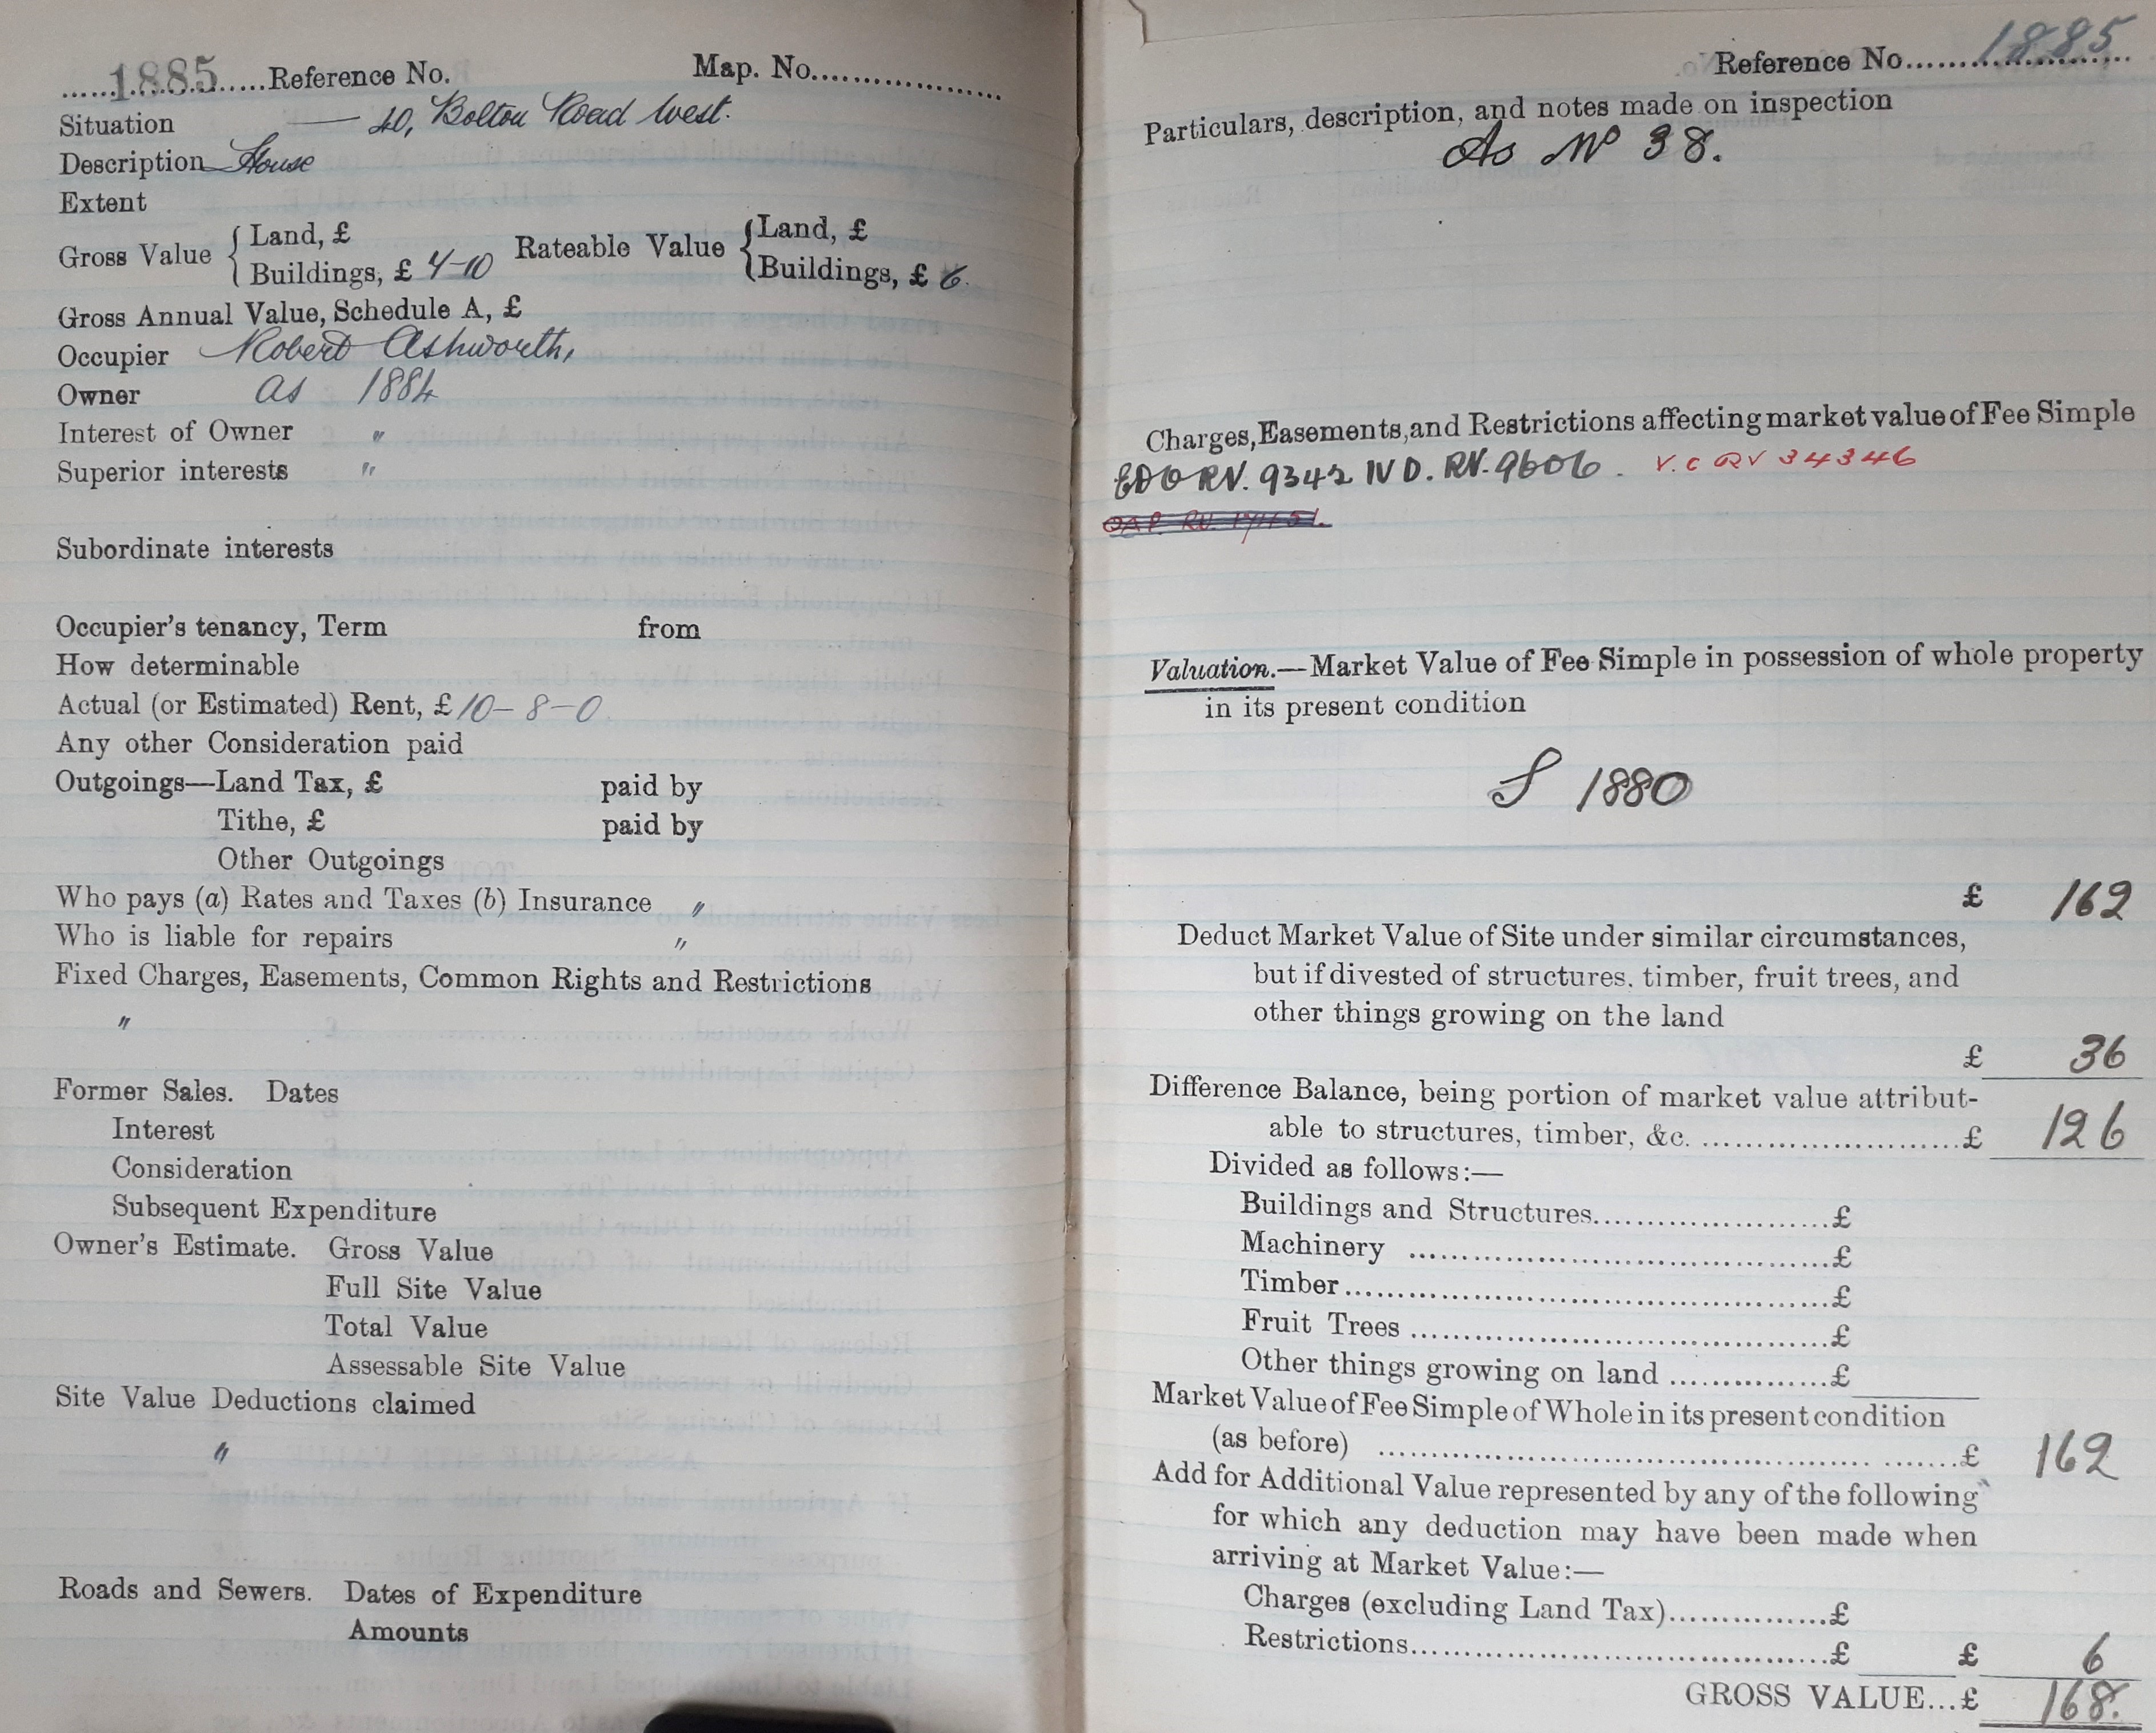 ......1885......Reference No. Map. No.....................
Situation — 40, Bolton Road West.
Description House
Extent
Gross Value { Land, £ Rateable Value { Land, £
Buildings, £ 4-10 Buildings, £ 6.
Gross Annual Value, Schedule A, £
Occupier Robert Ashworth,
Owner as 1884
Interest of Owner "
Superior interests "
Subordinate interests
Occupier's tenancy, Term from
How determinable
Actual (or Estimated) Rent, £ 10-8-0
Any other Consideration paid
Outgoings—Land Tax, £ paid by
Tithe, £ paid by
Other Outgoings
Who pays (a) Rates and Taxes (b) Insurance "
Who is liable for repairs "
Fixed Charges, Easements, Common Rights and Restrictions
"
Former Sales. Dates
Interest
Consideration
Subsequent Expenditure
Owner's Estimate. Gross Value
Full Site Value
Total Value
Assessable Site Value
Site Value Deductions claimed
"
Roads and Sewers. Dates of Expenditure
Amounts
Reference No......1885......
Particulars, description, and notes made on inspection
As No 38.
Charges, Easements, and Restrictions affecting market value of Fee Simple
EDO RV. 9342 IVD. RV. 9606. V.C RV 34346
Valuation.—Market Value of Fee Simple in possession of whole property
in its present condition
S 1880
£ 162
Deduct Market Value of Site under similar circumstances,
but if divested of structures. timber, fruit trees, and
other things growing on the land
£ 36
Difference Balance, being portion of market value attribut-
able to structures, timber, &c. ..........................£ 126
Divided as follows:—
Buildings and Structures.......................£
Machinery ..........................................£
Timber................................................£
Fruit Trees ..........................................£
Other things growing on land ................£
Market Value of Fee Simple of Whole in its present condition
(as before) ..........................................................£ 162
Add for Additional Value represented by any of the following
for which any deduction may have been made when
arriving at Market Value:—
Charges (excluding Land Tax)................£
Restrictions..........................................£ £ 6
GROSS VALUE...£ 168.